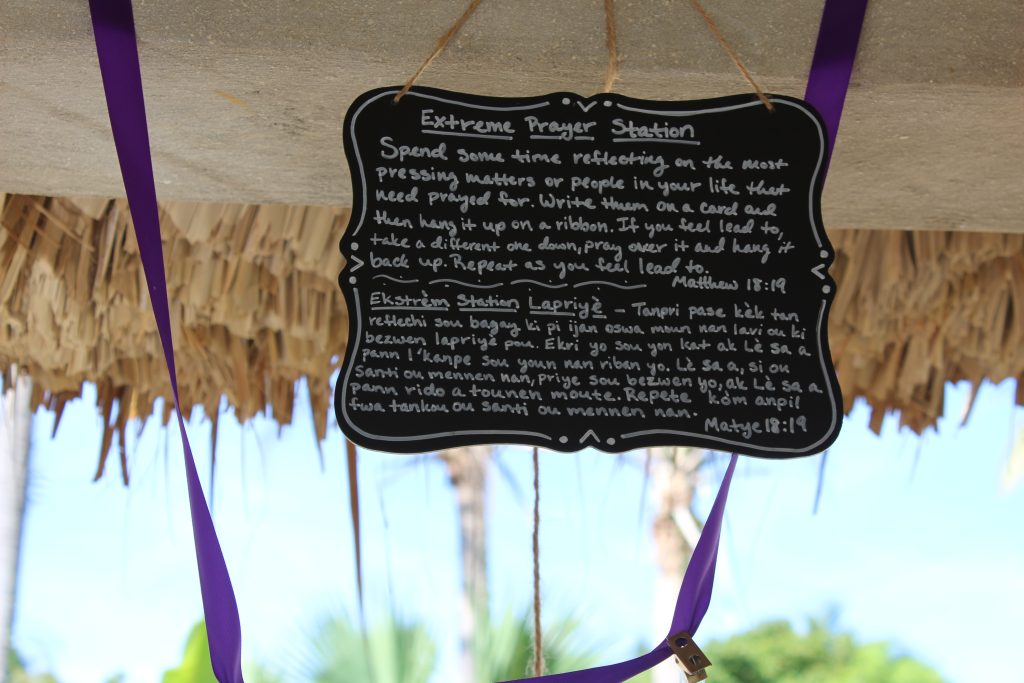 Extreme Prayer Station
Spend some time reflecting on the most
pressing matters or people in your life that
need prayed for. Write them on a card and
then hang it up on a ribbon. If you feel lead to,
take a different one down, pray over it and hang it
back up. Repeat as you feel lead to.
Matthew 18:19
Ekstrèm Station Lapriyè - Tanpri pase kèk tan
reflechi sou bagay ki pi ijan oswa moun nan lavi ou ki
bezwen lapriyè pou. Ekri yo sou yon kat ak Lè sa a
pann l'kanpe sou youn nan riban yo. Lè sa a, si ou
santi ou mennen nan, priye sou bezwen yo, ak Lè sa a
pann rido a tounen moute. Repete kòm anpil
fwa tankou ou santi ou mennen nan.
Matye 18:19